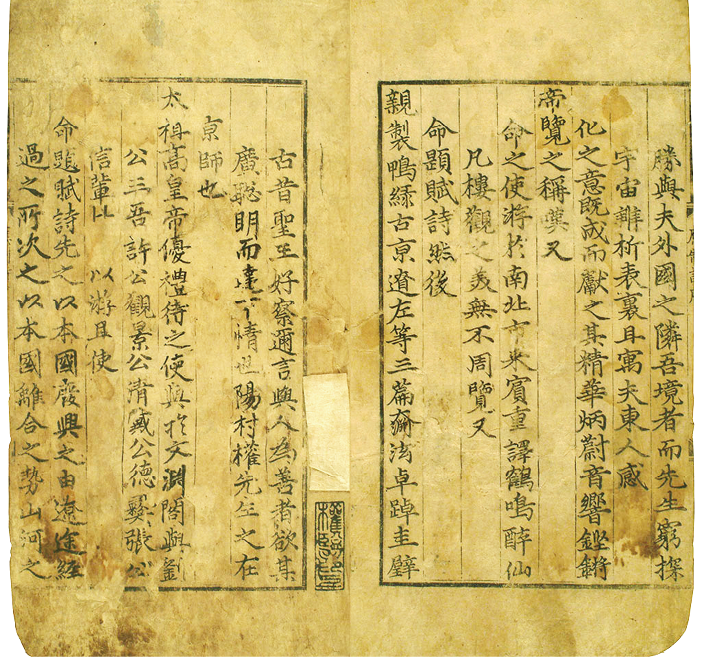 古昔聖王好察邇言與人為善者欲其
廣聡明而達下情也陽村權先生之在
京師也
太祖高皇帝優禮待之使與於文淵閣與劉
公三吾許公觀景公清戴公德彝張公
信輩比 以游且使
命題賦詩先之以本國廢興之由遼途經
過之所次之以本國離合之勢山河之
勝與夫外國之隣吾境者而先生窮探
宇宙辨析表裏且寓夫東人感
化之意既成而獻之其精華炳蔚音響鏗鏘
帝覽之稱嘆又
命之使游於南北市來賓重譯鶴鳴醉仙
凡樓觀之美無不周覽又
命題賦詩然後
親製鴨綠古京遼左等三篇 法卓踔圭璧